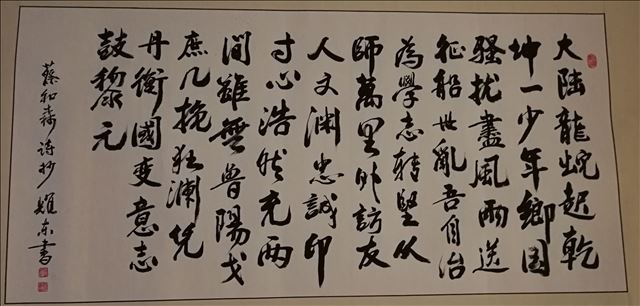 大陸龍蛇起乾
坤一少年鄉国
騷扰盡風雨送
征船世亂吾自治
為學志转堅从
師萬里外訪友
人文渊忠誠印
寸心浩然充两
间雖無魯陽戈
庶几挽狂澜凭
舟衡國变意志
鼓黎元
蔡和森诗抄 耀东書